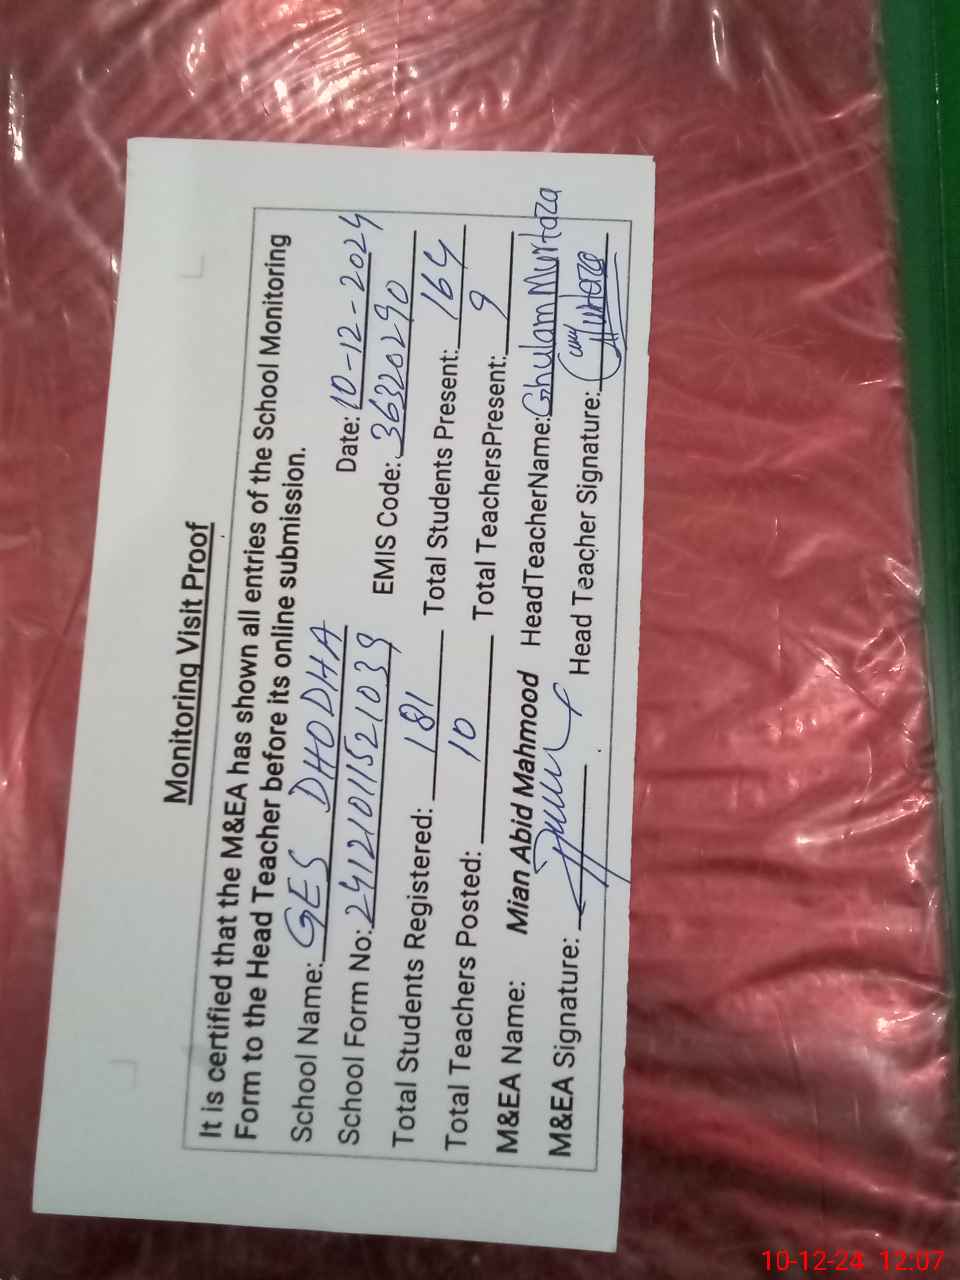 Monitoring Visit Proof
It is certified that the M&EA has shown all entries of the School Monitoring
Form to the Head Teacher before its online submission.
School Name: GES DHODHA Date: 10-12-2024
School Form No: 24121011521039 EMIS Code: 36320290
Total Students Registered: 181 Total Students Present: 164
Total Teachers Posted: 10 Total TeachersPresent: 9
M&EA Name: Mian Abid Mahmood HeadTeacherName: Ghulam Murtaza
M&EA Signature: Head Teacher Signature: Murtaza
10-12-24 12:07